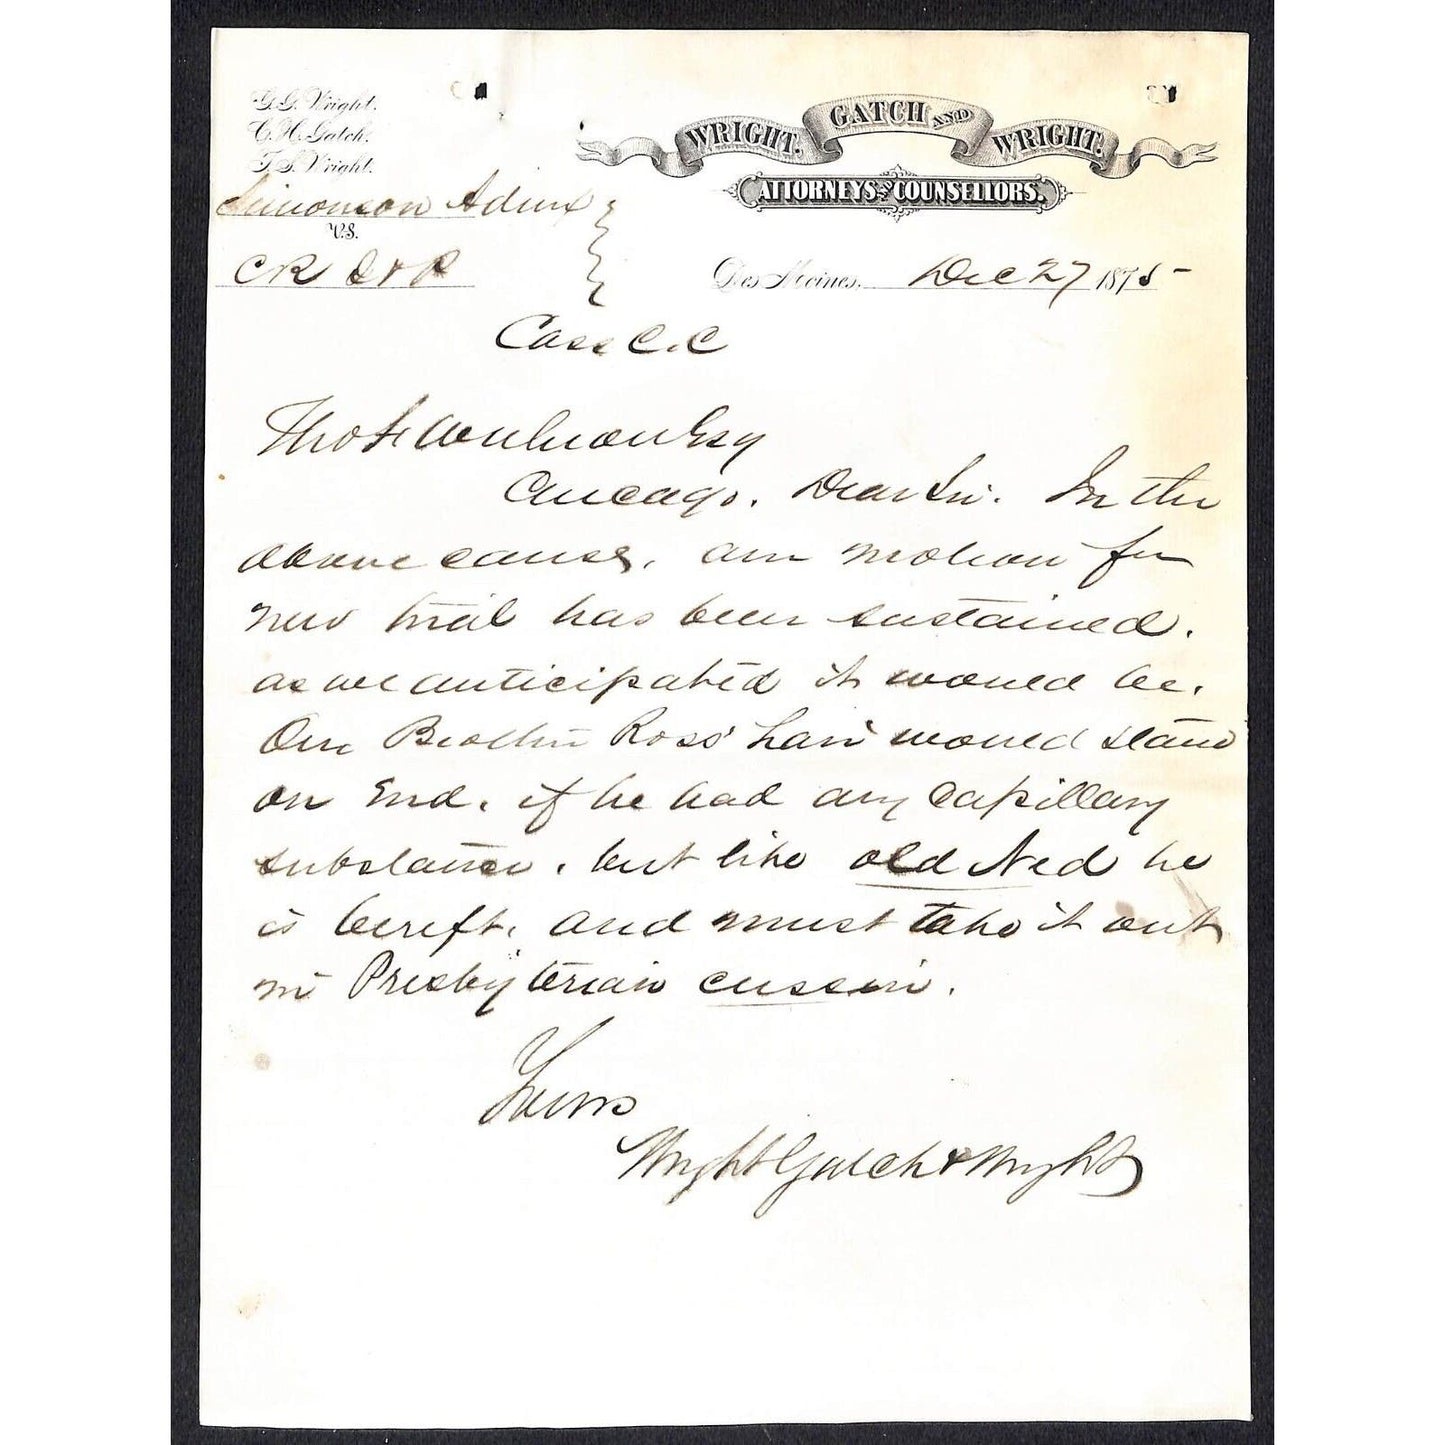 G. G. Wright.
C. H. Gatch.
T. S. Wright.
WRIGHT. GATCH AND WRIGHT.
ATTORNEYS AND COUNSELLORS.
Simonson Admx
vs.
CR I & P
Des Moines, Dec 27 1875-
Cass C.C
Tho F Withrow Esq
Chicago. Dear Sir. In the
above cause, our motion for
new trial has been sustained.
as we anticipated it would be.
Our Brother Ross' hair would stand
on End, if he had any capillary
substance, but like old Ned he
is bereft, and must take it out
in Presbyterian cussin.
Yours
Wright Gatch & Wright